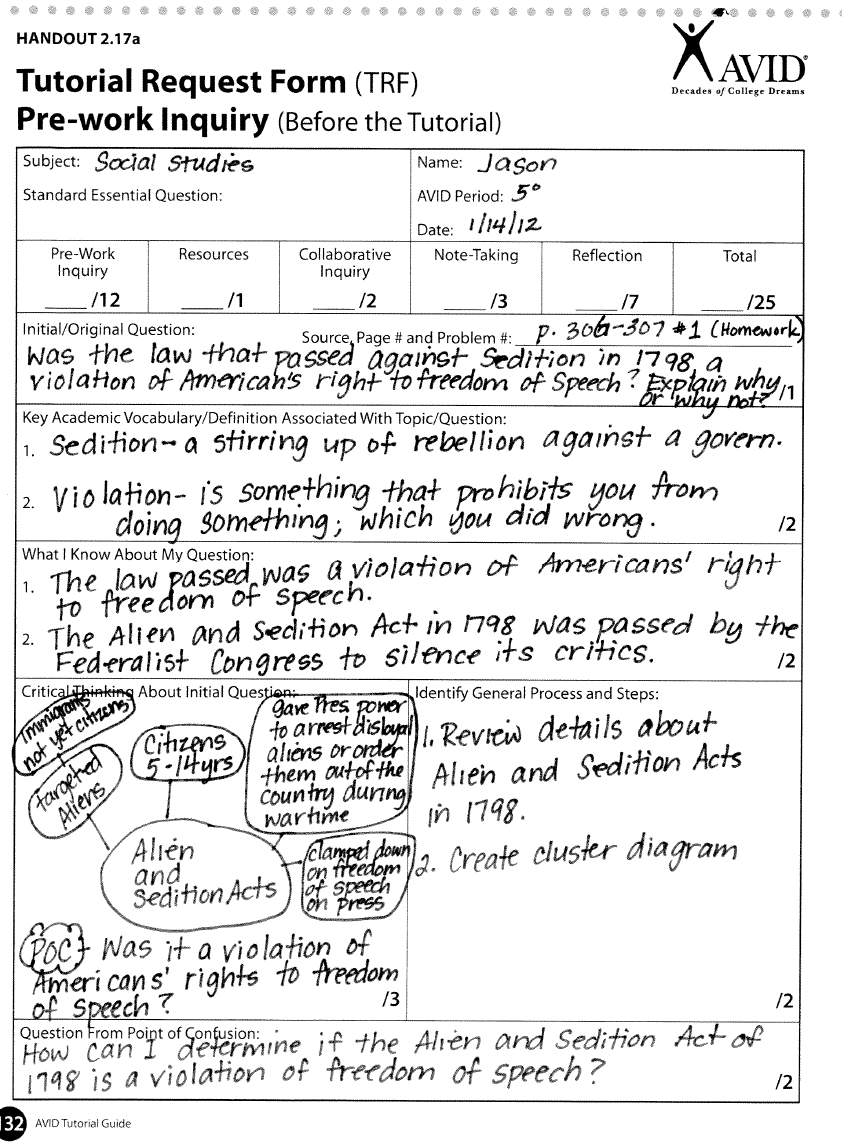 HANDOUT 2.17a
AVID
Decades of College Dreams
Tutorial Request Form (TRF)
Pre-work Inquiry (Before the Tutorial)
Subject: Social Studies
Name: Jason
Standard Essential Question:
AVID Period: 5°
Date: 1/14/12
Pre-Work Inquiry
____ /12
Resources
____ /1
Collaborative Inquiry
____ /2
Note-Taking
____ /3
Reflection
____ /7
Total
____ /25
Initial/Original Question:
Source, Page # and Problem #: p. 306-307 #1 (Homework)
Was the law that passed against Sedition in 1798 a
violation of American's right to freedom of Speech? Explain why
or why not?
/1
Key Academic Vocabulary/Definition Associated With Topic/Question:
1. Sedition - a stirring up of rebellion against a govern.
2. Violation - is something that prohibits you from
doing something; which you did wrong.
/2
What I Know About My Question:
1. The law passed was a violation of Americans' right
to freedom of speech.
2. The Alien and Sedition Act in 1798 was passed by the
Federalist Congress to silence its critics.
/2
Critical Thinking About Initial Question:
immigrants
not yet citizens
targeted
Aliens
Citizens
5-14yrs
gave Pres. power
to arrest disloyal
aliens or order
them out of the
country during
wartime
Alien
and
Sedition Acts
clamped down
on freedom
of speech
on press
POC - Was it a violation of
Americans' rights to freedom
of speech?
/3
Identify General Process and Steps:
1. Review details about
Alien and Sedition Acts
in 1798.
2. Create cluster diagram
/2
Question From Point of Confusion:
How can I determine if the Alien and Sedition Act of
1798 is a violation of freedom of speech?
/2
132 AVID Tutorial Guide